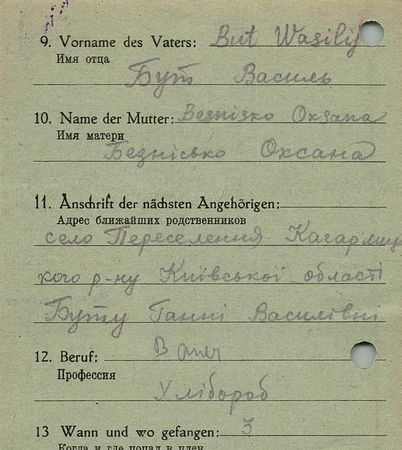 9. Vorname des Vaters: But Wasilij
Имя отца
Бут Василь
10. Name der Mutter: Besnisko Oksana
Имя матери
Безнісько Оксана
11. Anschrift der nächsten Angehörigen:
Адрес ближайших родственников
село Переселення Кагарлиц
кого р-ну Київської області
Буту Ганні Василівні
12. Beruf: Bauer
Профессия
Хлібороб
13 Wann und wo gefangen: 3
Когда и где попал в плен